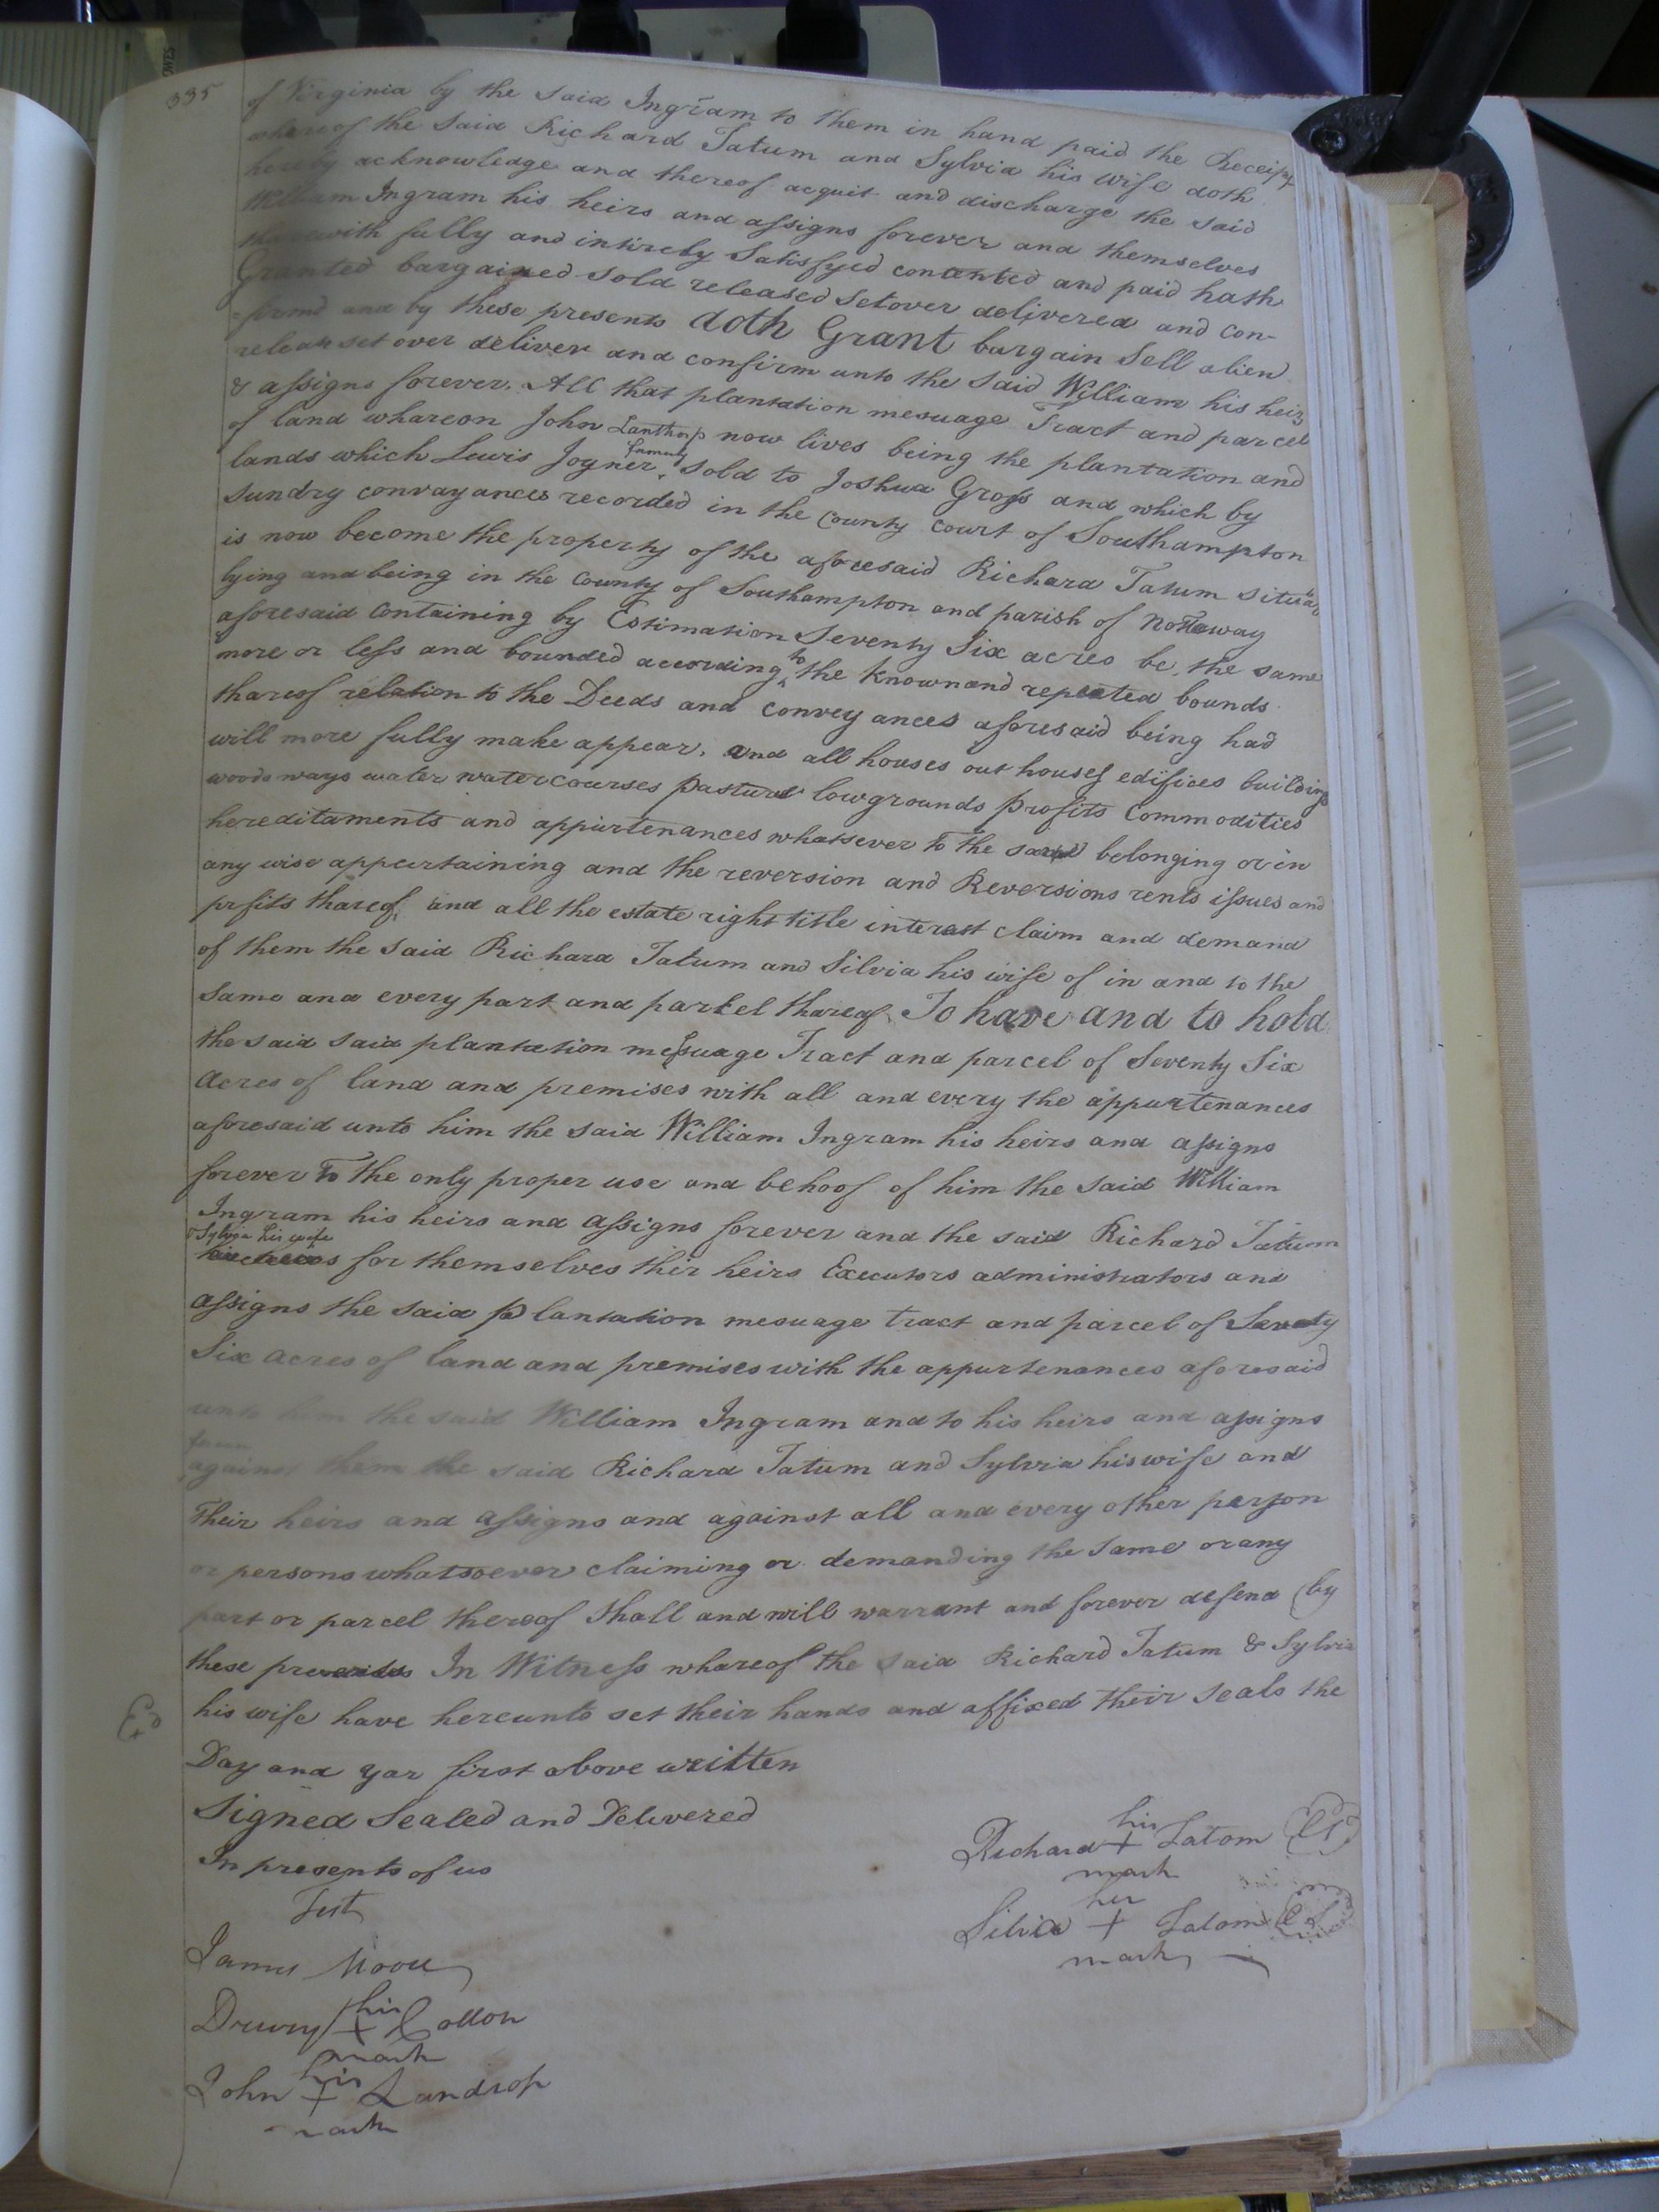 335
of Virginia by the said Ingram to them in hand paid the Receipt
whereof the said Richard Tatum and Sylvia his wife doth
hereby acknowledge and thereof acquit and discharge the said
William Ingram his heirs and assigns forever and themselves
tharewith fully and intirely Satisfyed contented and paid hath
Granted bargained sold released setover delivered and con-
=firmd and by these presents doth Grant bargain Sell alien
releas set over deliver and confirm unto the said William his heirs
& assigns forever. All that plantation mesuage Tract and parcel
of land whareon John Lanthrop now lives being the plantation and
lands which Lewis Joyner formerly sold to Joshua Gross and which by
sundry convayances recorded in the County Court of Southampton
is now become the property of the aforesaid Richard Tatum situate
lying and being in the County of Southampton and parish of Nottaway
aforesaid containing by Estimation Seventy Six acres be the same
more or less and bounded according to the known and repeated bounds
thareof relation to the Deeds and conveyances aforesaid being had
will more fully make appear. and all houses out houses edifices buildings
woods ways water watercourses pasture lowgrounds profits Commodities
hereditaments and appurtenances whatsever to the same belonging or in
any wise appertaining and the reversion and Reversions rents issues and
prfits thareof, and all the estate right title interest claim and demand
of them the said Richard Tatum and Silvia his wife of in and to the
same and every part and parcel thareof. To have and to hold
the said said plantation messuage Tract and parcel of Seventy Six
Acres of land and premises with all and every the appurtenances
aforesaid unto him the said William Ingram his heirs and assigns
forever To the only proper use and behoof of him the said William
Ingram his heirs and assigns forever and the said Richard Tatum
& Sylvia his wife
for themselves thir heirs Executors administrators and
assigns the said plantation mesuage tract and parcel of Seventy
Six acres of land and premises with the appurtenances aforesaid
unto him the said William Ingram and to his heirs and assigns
against them the said Richard Tatum and Sylvia his wife and
Their heirs and assigns and against all and every other person
or persons whatsoever claiming or demanding the same or any
part or parcel thereof shall and will warrant and forever defend by
these presents In Witness whareof the said Richard Tatum & Sylvia
his wife have hereunto set their hands and affixed their seals the
Exd
Day and year first above written
Signed Sealed and Delivered
In presents of us
Test
Richard his + mark Tatom (LS)
Silvia her + mark Tatom (LS)
James Moore
Drewry his + mark Cotton
John his + mark Landrop